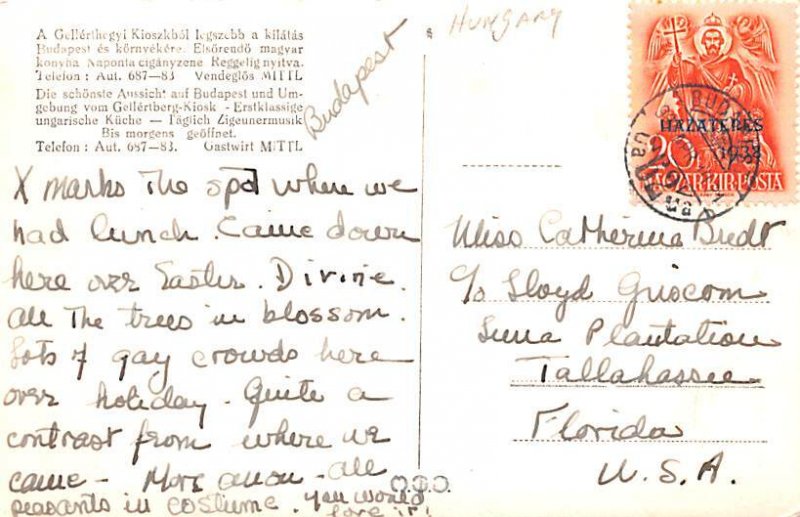 A Gellérthegyi Kioszkból legszebb a kilátás
Budapest és környékére. Elsőrendű magyar
konyha Naponta cigányzene Reggelig nyitva.
Telefon: Aut. 687—83 Vendeglős MITTL
Die schönste Aussicht auf Budapest und Um-
gebung vom Gellértberg-Kiosk - Erstklassige
ungarische Küche — Täglich Zigeunermusik
Bis morgens geöffnet.
Telefon: Aut. 687—83. Gastwirt MITTL
Budapest
X marks The spot where we
had lunch. Came down
here over Easter. Divine.
All The trees in blossom.
Lots of gay crowds here
over holiday. Quite a
contrast from where we
came - More anon - all
peasants in costume. You would
love it!
HUNGARY
HAZATÉRÉS
1938
20
MAGYAR·KIR·POSTA
BUDAPEST
Miss Catherine Bredt
c/o Lloyd Griscom
Luna Plantation
Tallahassee
Florida
U.S.A.